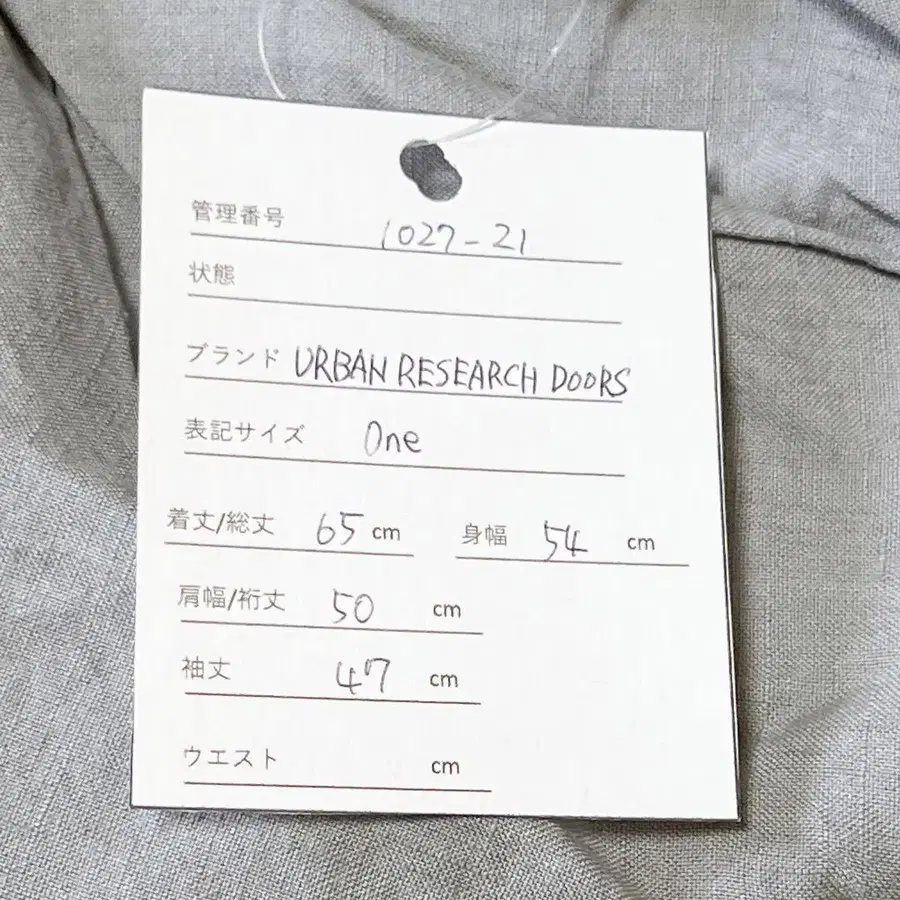 管理番号 1027-21
状態
ブランド URBAN RESEARCH DOORS
表記サイズ One
着丈/総丈 65 cm 身幅 54 cm
肩幅/裄丈 50 cm
袖丈 47 cm
ウエスト cm